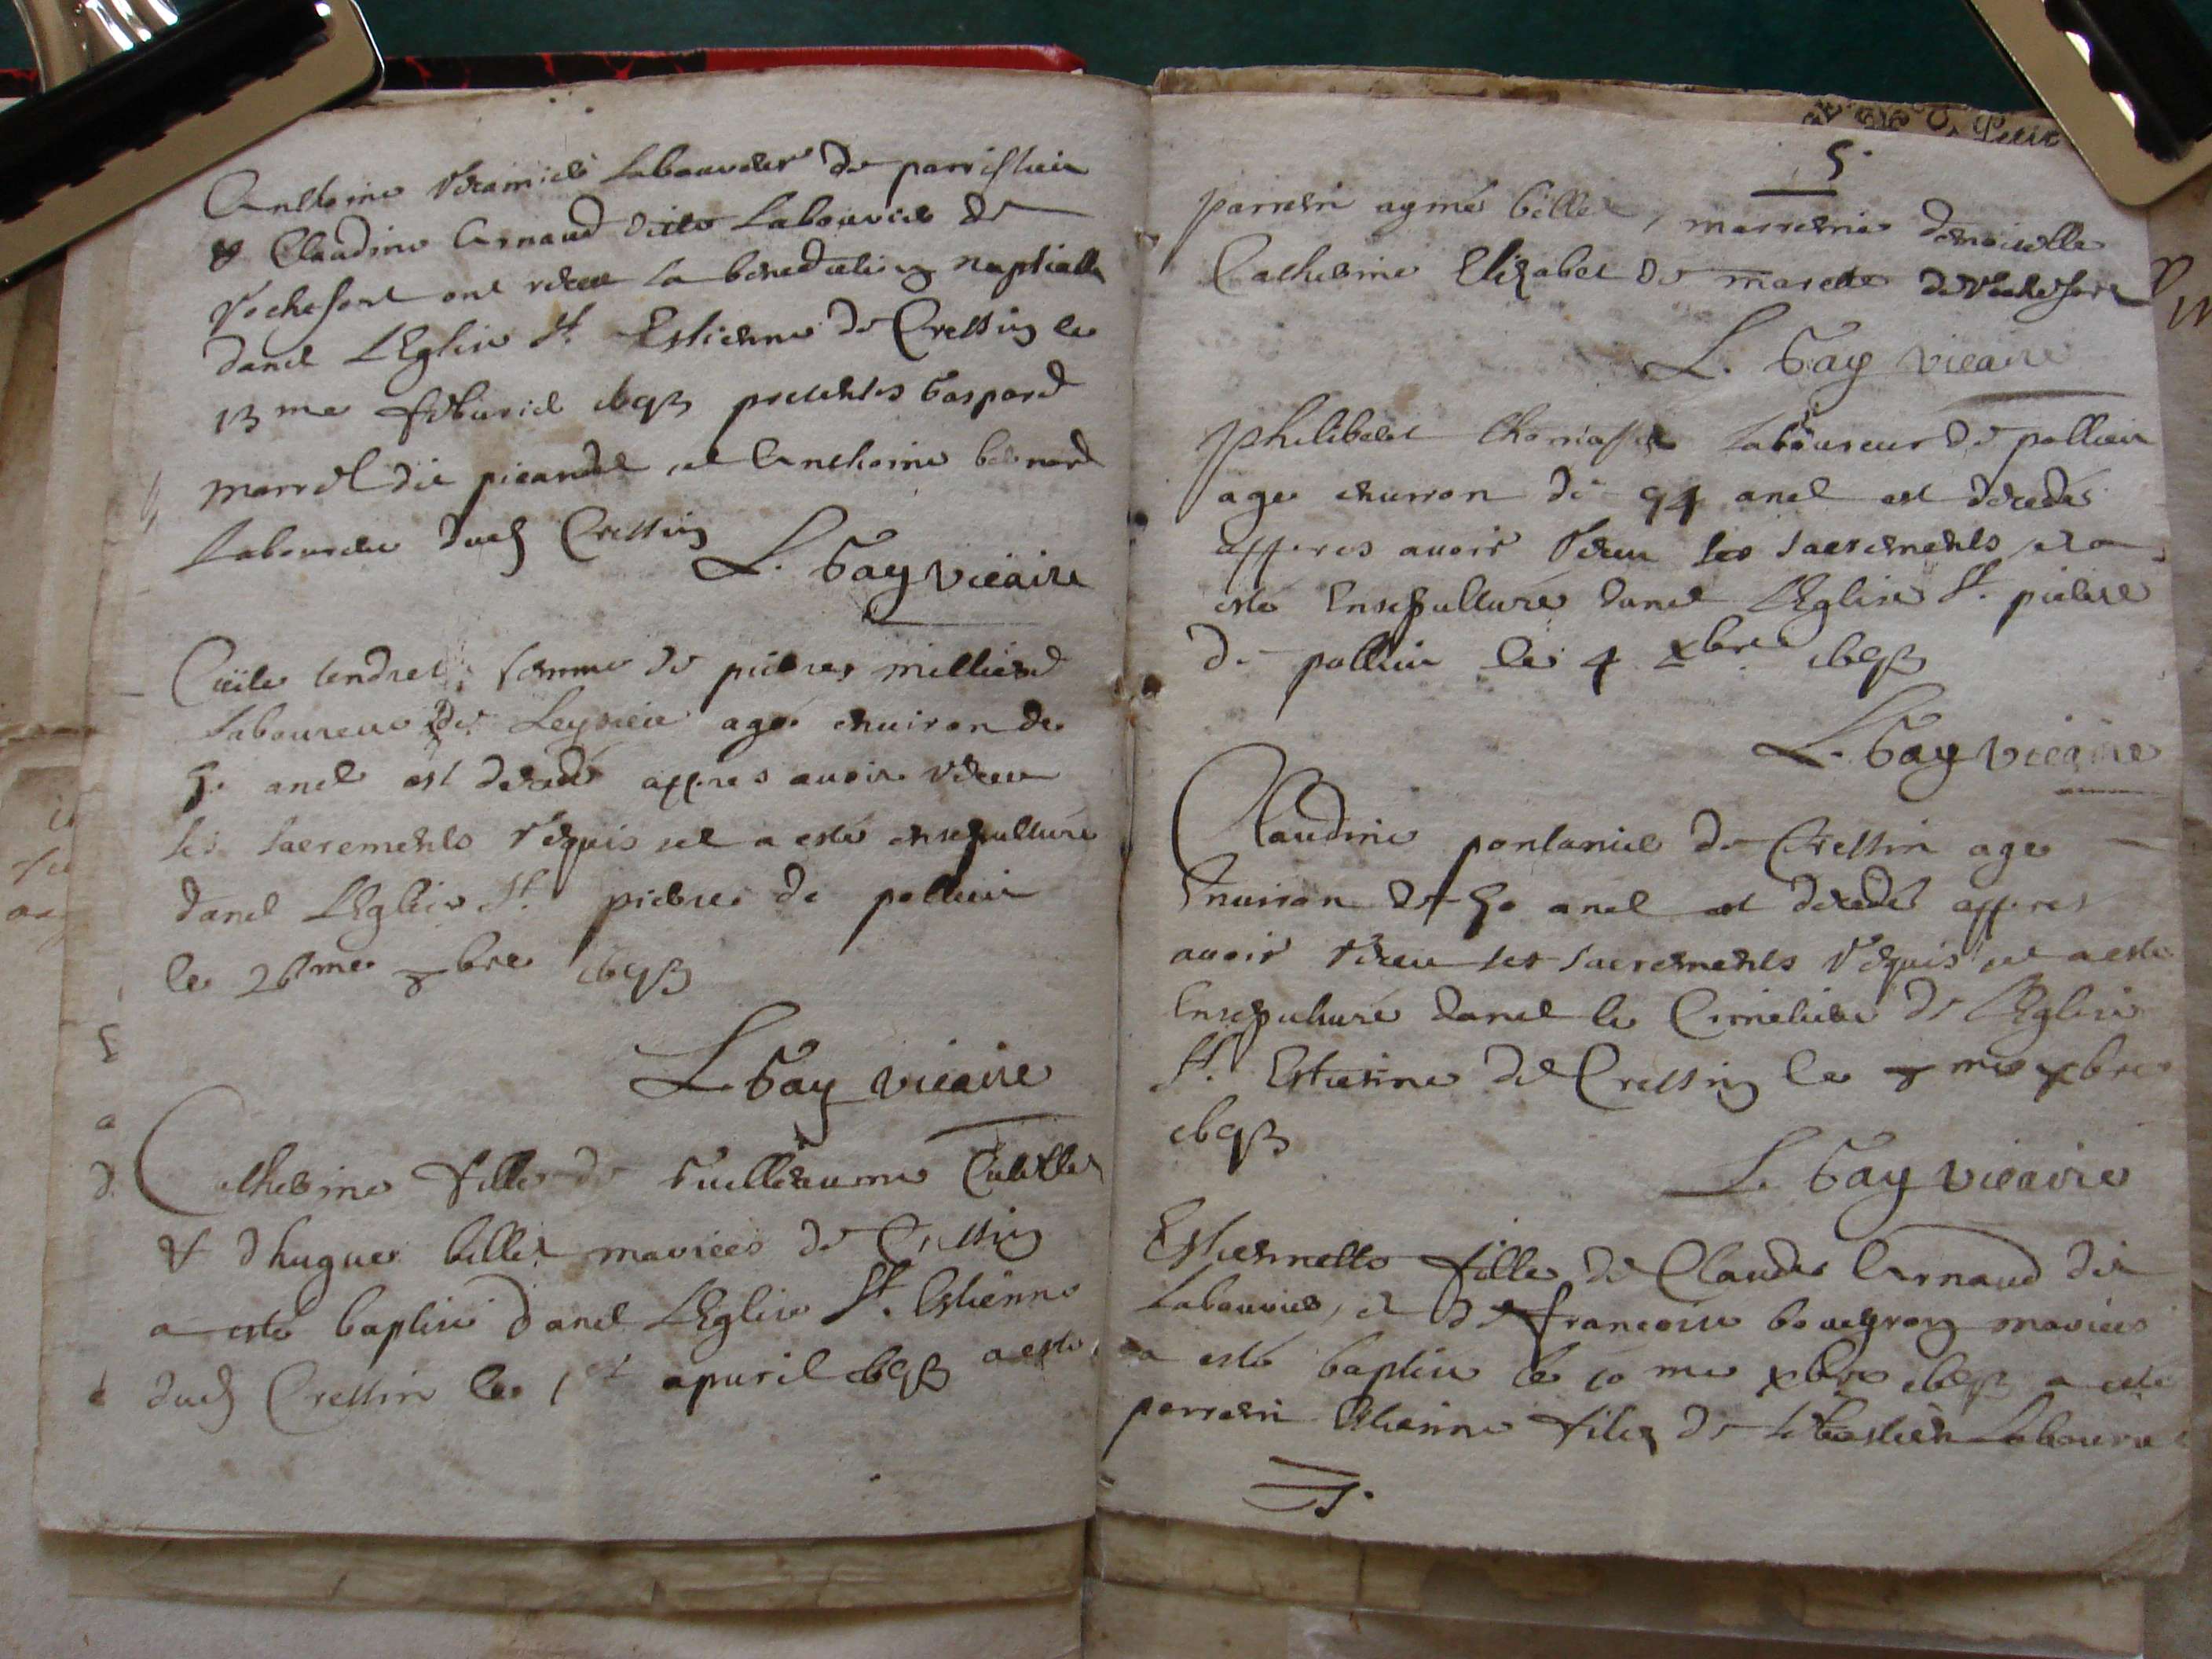 Anthoine Ramie laboureur de parrissieu
& Claudine Arnaud ditte Labourie de
Rochefort ont receu la benediction nuptialle
dans L'Eglise St. Estienne de Cressin le
13me feburier presents Gaspard
marrel dit picandet et Anthoine bernard
Laboureur dud Cressin
L. Gay vicaire
femme de pierre millieret
Laboureur de Leysieu agé enuiron de
50 ans est decedé appres auoir receu
les sacrements requis et a esté ensepulturé
dans L'Eglise St. pierre de pollieu
le 26me bre
L. Gay vicaire
Catherine fille de Guilleaume
& d'hugue billet mariees de Cressin
a esté baptisé dans L'Eglise St. Estienne
dud Cressin le 1er apuril a esté
5.
parrein aymé billet, marreine demoiselle
Catherine Elizabet de mareste de Rochefort
L. Gay vicaire
Philibert Laboureur de pollieu
age enuiron de 94 ans est decedé
appres auoir Receu les sacrements et a
esté Ensepulturé dans L'Eglise St. pierre
de pollieu le 4 xbre
L. Gay vicaire
Claudine pontanier de Cressin age
Enuiron de 50 ans est decedé appres
auoir Receu les sacrements Requis et a esté
Ensepulturé dans le Cimetiere de L'Eglise
St. Estienne de Cressin le me xbre
L. Gay vicaire
Estiennette fille de Claude Arnaud dit
Labourier, et de françoise mariees
a esté baptise le 10 me xbre a esté
parrein Estienne filz de sebastien Labourie